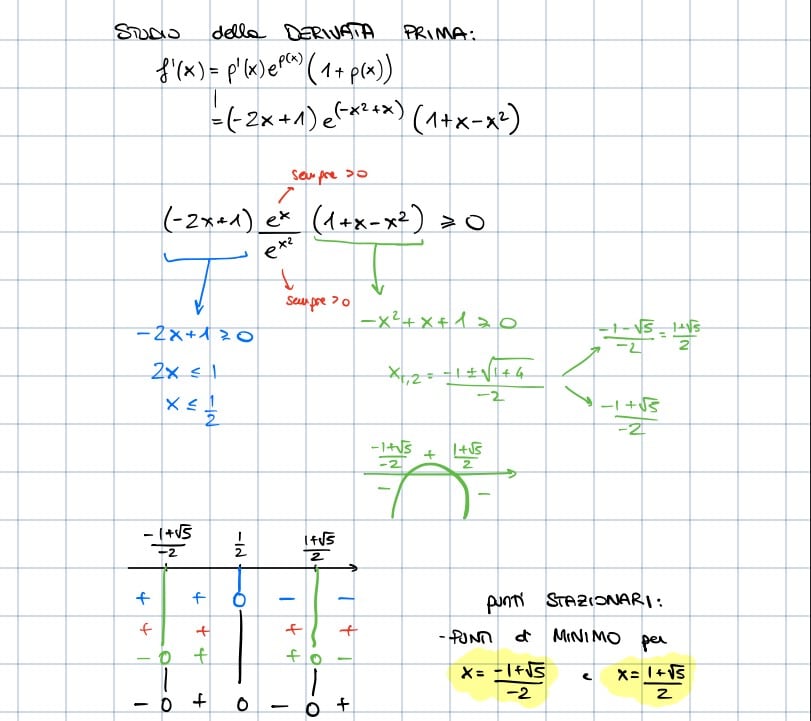 STUDIO della DERIVATA PRIMA:
f'(x) = p'(x) e^{p(x)} (1 + p(x))
= (-2x+1) e^{(-x²+x)} (1+x-x²)
sempre >0
(-2x+1) e^x/e^{x²} (1+x-x²) ≥ 0
sempre >0
-2x+1 ≥ 0
2x ≤ 1
x ≤ 1/2
-x²+x+1 ≥ 0
x_{1,2} = (-1 ± √(1+4))/-2
(-1-√5)/-2 = (1+√5)/2
(-1+√5)/-2
(-1+√5)/-2 + (1+√5)/2
- -
(-1+√5)/-2 1/2 (1+√5)/2
+ + 0 - -
+ + + +
- 0 + + 0 -
- 0 + 0 - 0 +
PUNTI STAZIONARI:
- PUNTI di MINIMO per
x = (-1+√5)/-2 e x = (1+√5)/2